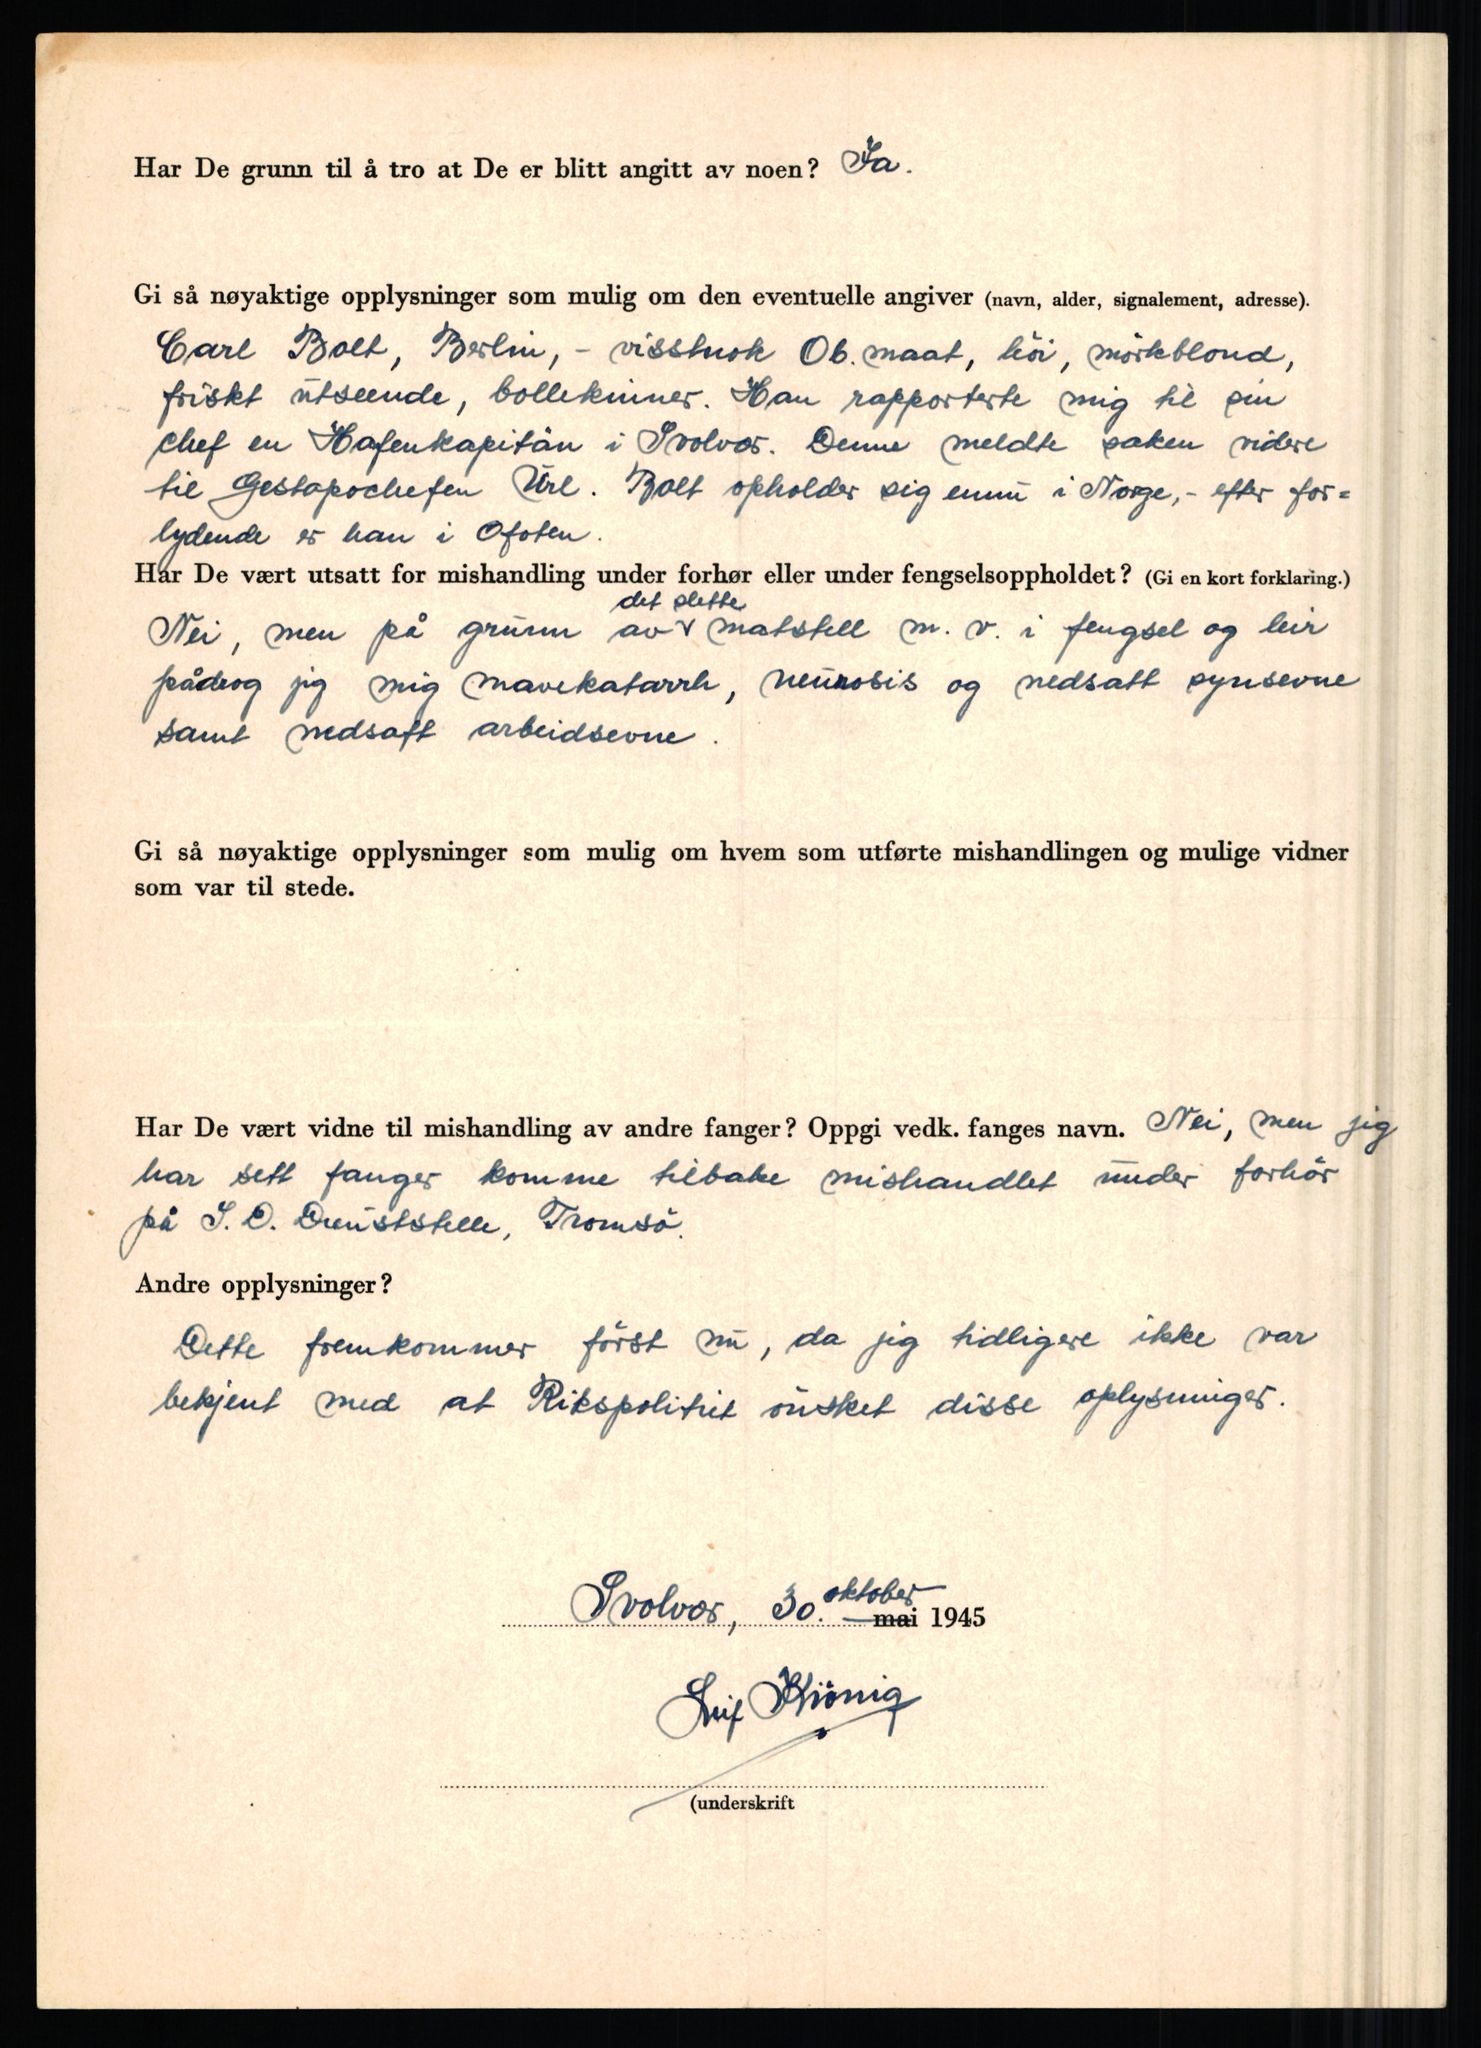 Har De grunn til å tro at De er blitt angitt av noen? Ja.
Gi så nøyaktige opplysninger som mulig om den eventuelle angiver (navn, alder, signalement, adresse).
Carl Bolt, Berlin, - visstnok Ob. maat, höi, mörkblond,
friskt utseende, bollekinner. Han rapporterte mig til sin
chef en Hafenkapitän i Svolvær. Denne meldte saken videre
til Gestapochefen Url. Bolt opholder sig ennu i Norge, - efter for=
lydende er han i Ofoten.
Har De vært utsatt for mishandling under forhør eller under fengselsoppholdet? (Gi en kort forklaring.)
det slette
Nei, men på grunn av v matstell m. v. i fengsel og leir
pådrog jeg mig mavekatarrh, neurosis og nedsatt synsevne
samt nedsatt arbeidsevne.
Gi så nøyaktige opplysninger som mulig om hvem som utførte mishandlingen og mulige vidner
som var til stede.
Har De vært vidne til mishandling av andre fanger? Oppgi vedk. fanges navn. Nei, men jeg
har sett fanger komme tilbake mishandlet under forhör
på S. D. Dienststelle, Tromsö.
Andre opplysninger?
Dette fremkommer först nu, da jeg tidligere ikke var
bekjent med at Rikspolitiet önsket disse oplysninger.
oktober
Svolvær, 30. mai 1945
Leif Kiönig
(underskrift